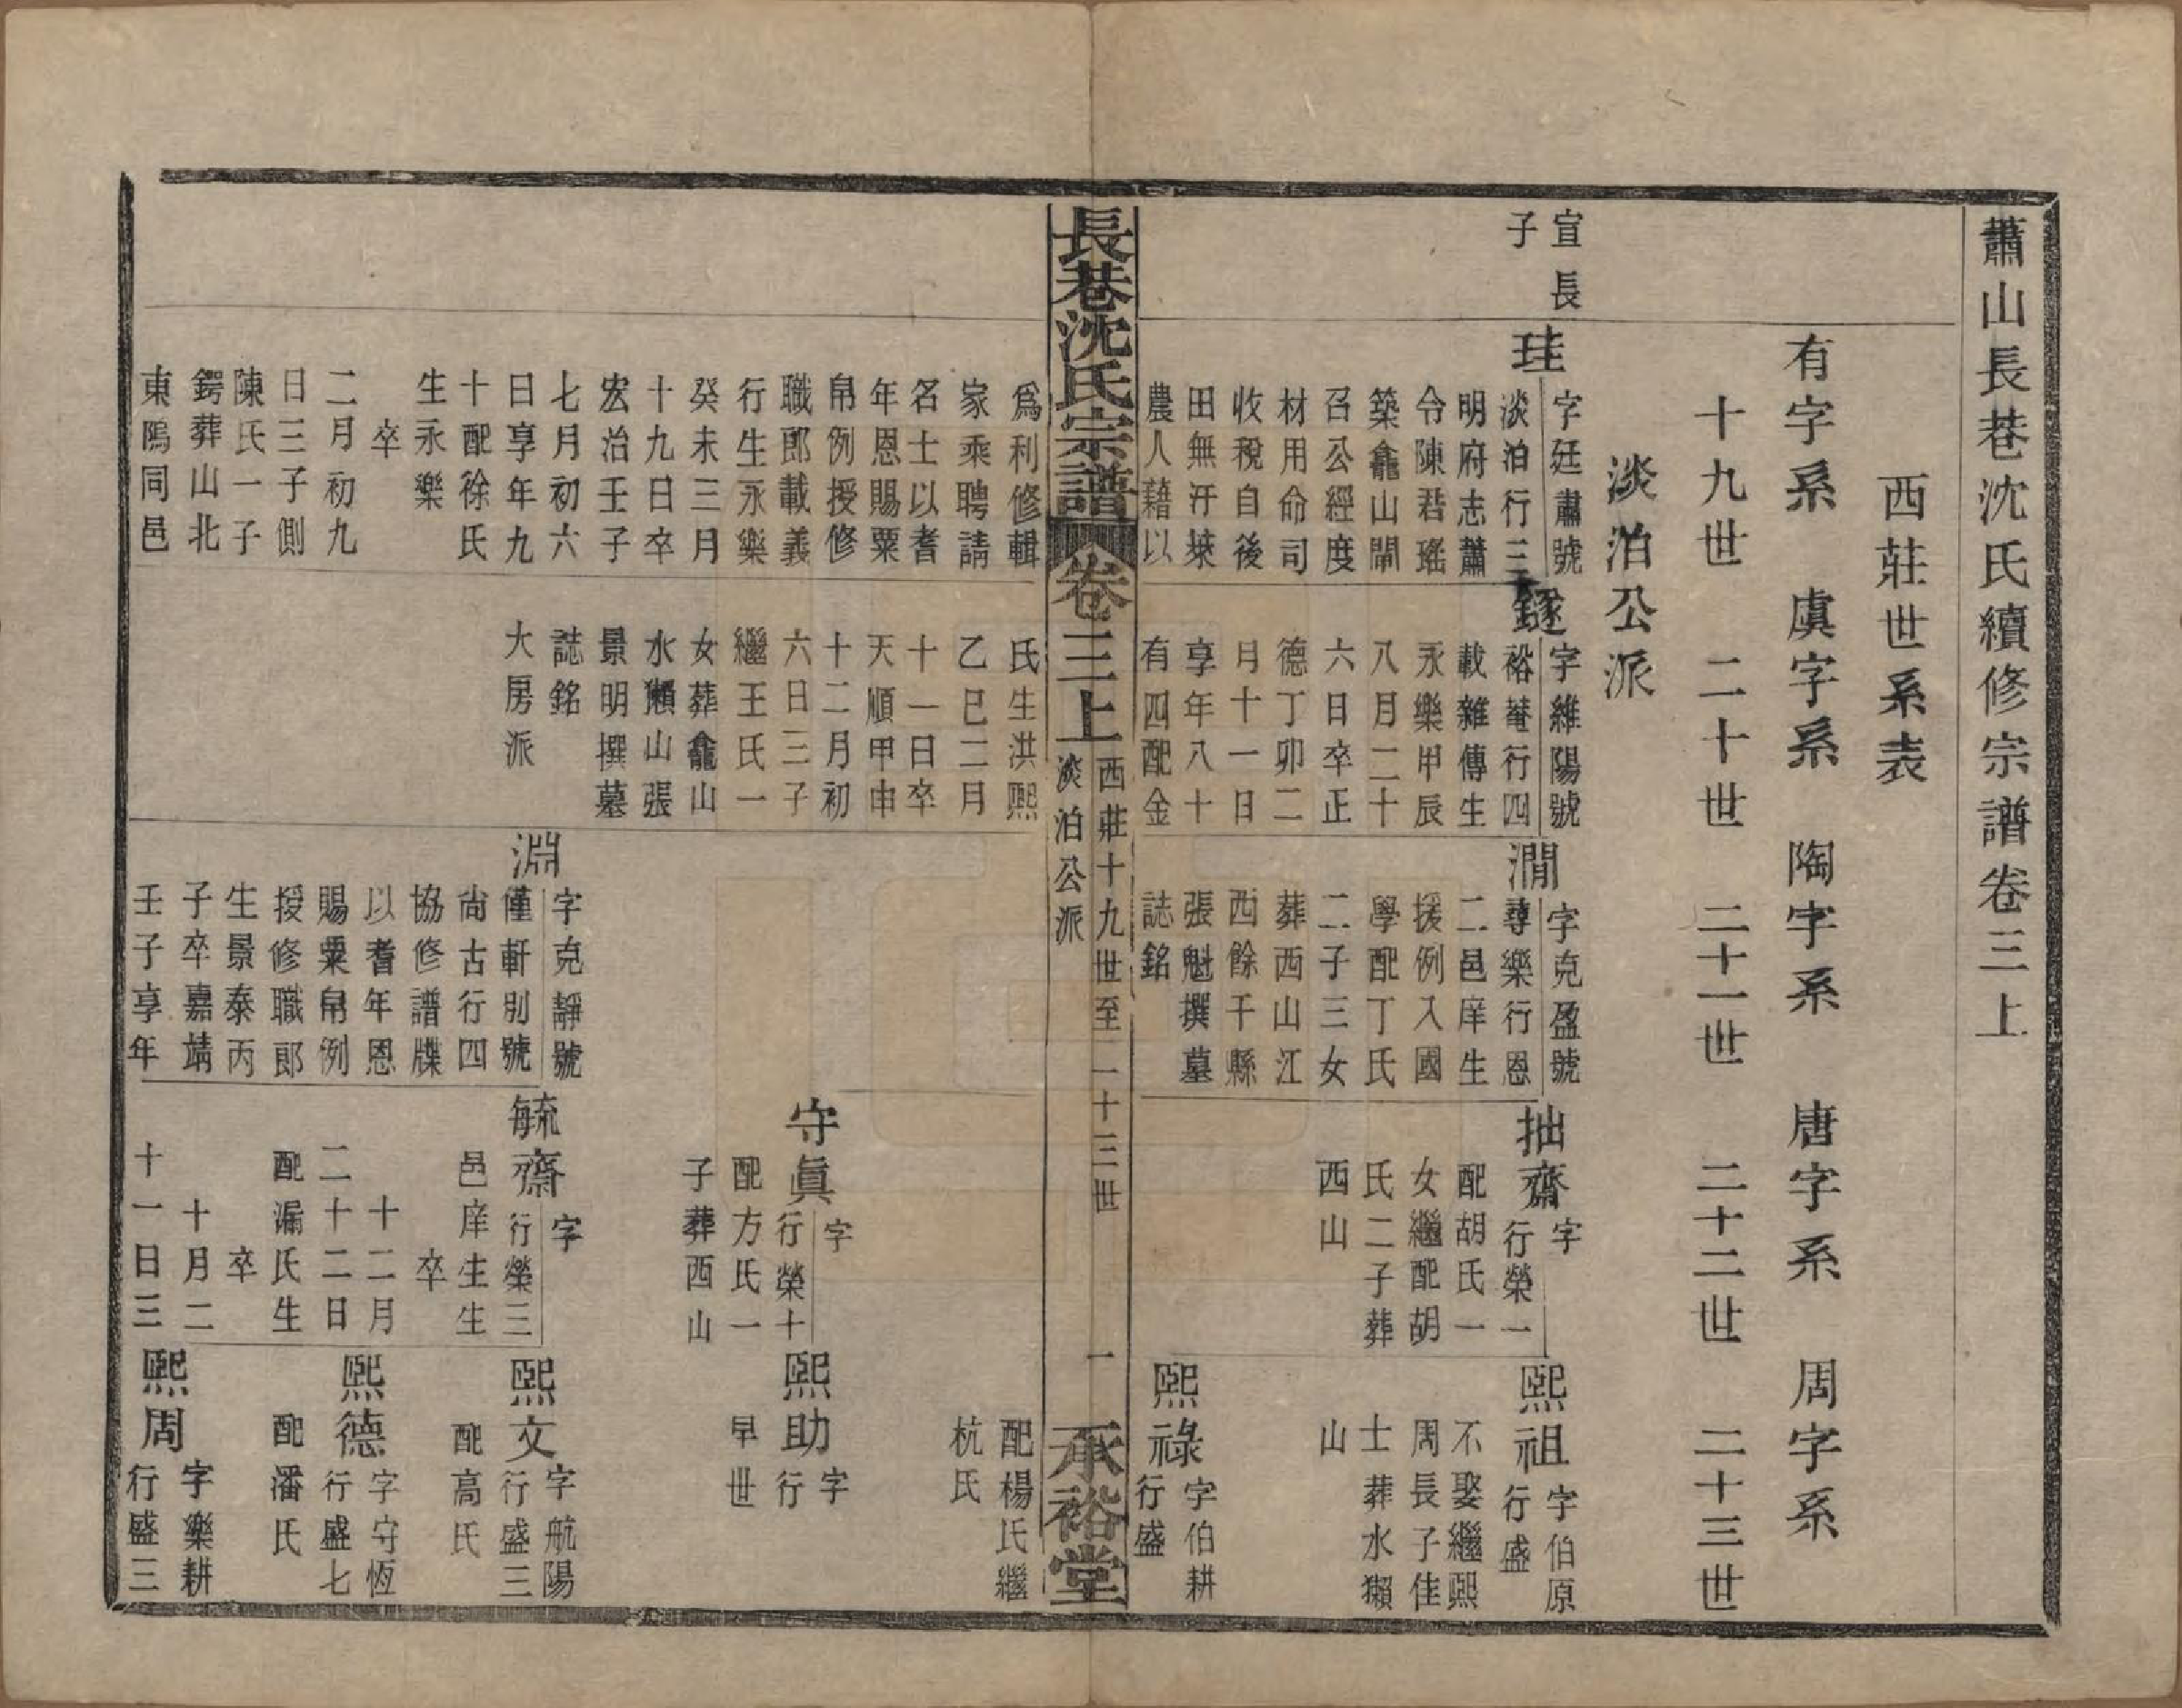 蕭山長巷沈氏續修宗譜卷三上
西莊世系表
有字系　虞字系　陶字系　唐字系　周字系
十九世　二十世　二十一世　二十二世　二十三世
淡泊公派
宣長
子
珪
字廷肅號
淡泊行三
明府志蕭
令陳君瑤
築龕山閘
召公經度
材用命司
收稅自後
田無汙萊
農人藉以
爲利修輯
家乘聘請
名士以耆
年恩賜粟
帛例授修
職郎載義
行生永樂
癸未三月
十九日卒
宏治壬子
七月初六
日享年九
十配徐氏
生永樂
卒
二月初九
日三子側
陳氏一子
鍔葬山北
東隝同邑
鐩
字維陽號
裕菴行四
載雜傳生
永樂甲辰
八月二十
六日卒正
德丁卯二
月十一日
享年八十
有四配金
氏生洪熙
乙巳二月
十一日卒
天順甲申
十二月初
六日三子
繼王氏一
女葬龕山
水獺山張
景明撰墓
誌銘
大房派
澗
字克盈號
尋樂行恩
二邑庠生
援例入國
學配丁氏
二子三女
葬西山江
西餘干縣
張魁撰墓
誌銘
淵
字克靜號
僅軒別號
尚古行四
協修譜牒
以耆年恩
賜粟帛例
授修職郎
生景泰丙
子卒嘉靖
壬子享年
拙齋
字
行榮一
配胡氏一
女繼配胡
氏二子葬
西山
守眞
字
行榮十
配方氏一
子葬西山
毓齋
字
行榮三
邑庠生生
卒
十二月
二十二日
配漏氏生
卒
十月二
十一日三
熙祖
字伯原
行盛
不娶繼熙
周長子佳
士葬水獺
山
熙祿
字伯耕
行盛
配楊氏繼
杭氏
熙助
字
行
早世
熙文
字航陽
行盛三
配高氏
熙德
字守恆
行盛七
配潘氏
熙周
字樂耕
行盛三
長巷沈氏宗譜
卷三上
西莊十九世至二十三世
淡泊公派
一
承裕堂